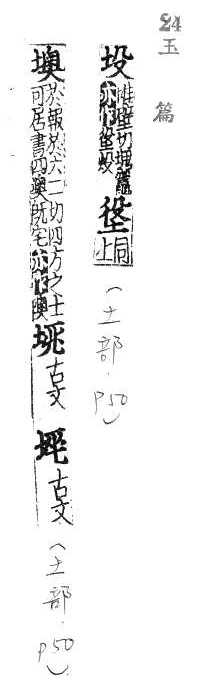 24
玉篇
坄 壁切塊竈
亦作
垼 同上
(土部.P50)
墺 於報於六二切四方之土
可居書四奥既宅亦作隩
古文
古文
(土部.P50)